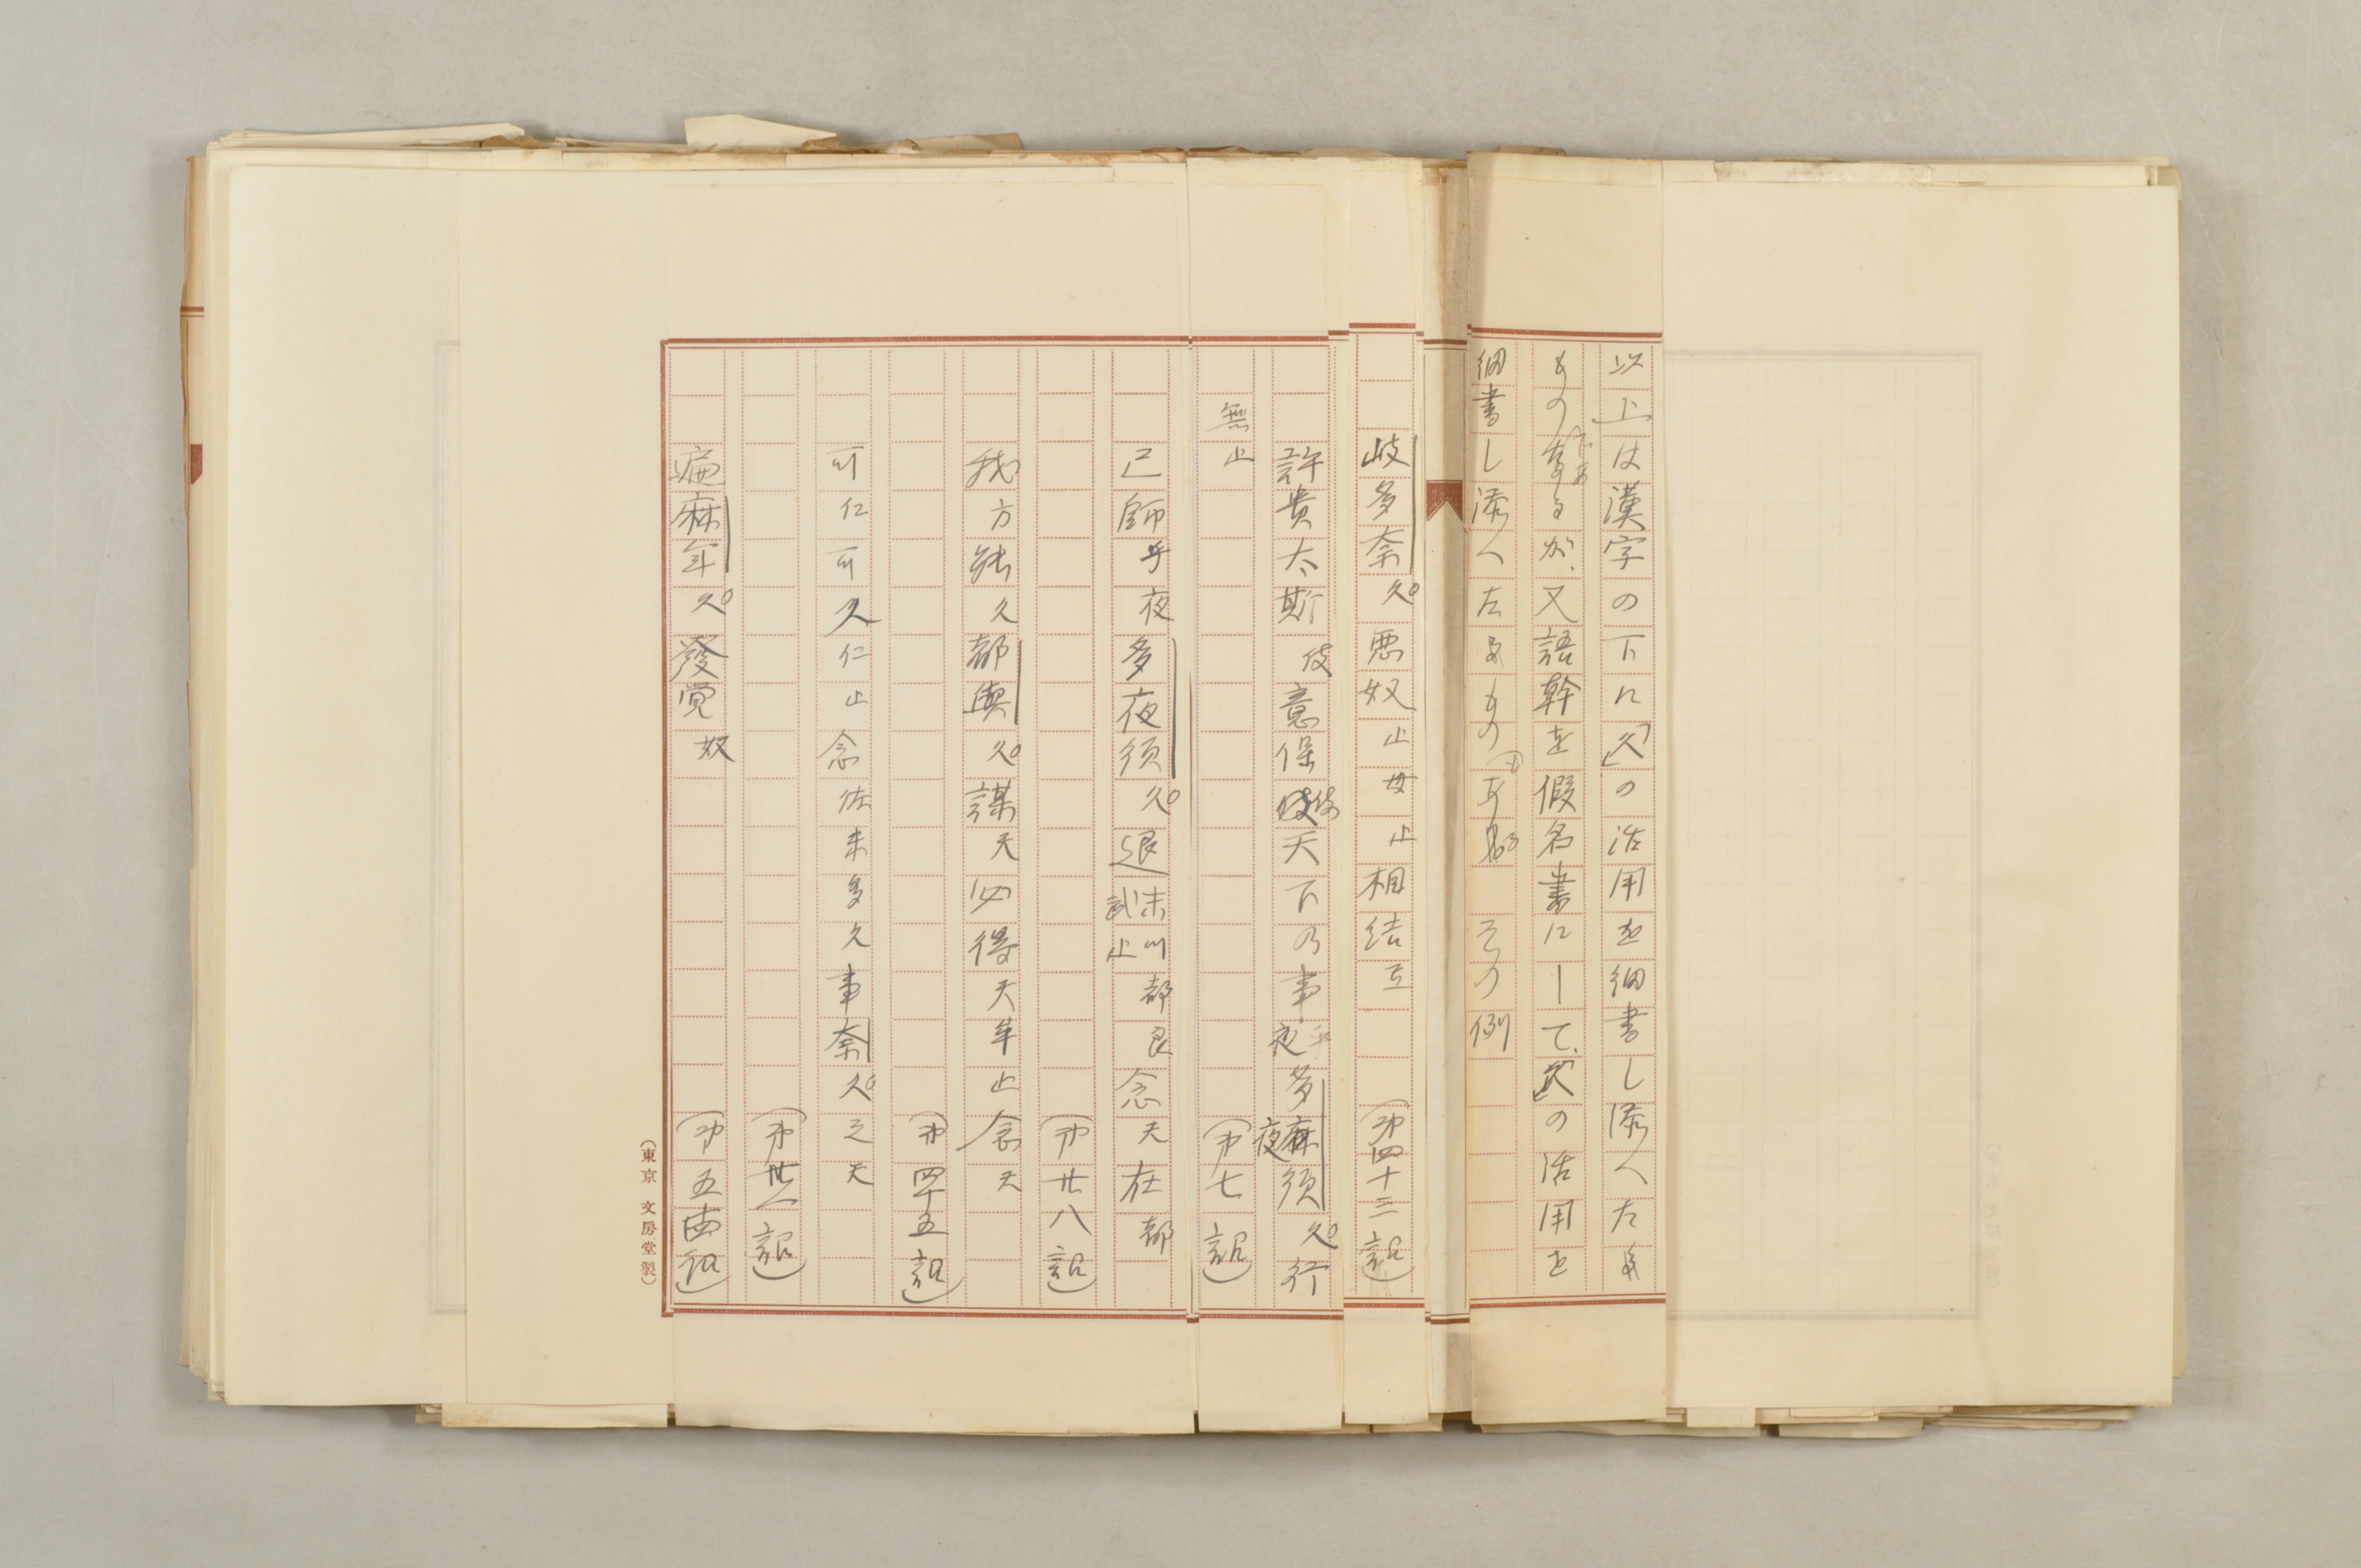 以上は漢字の下に「久」の活用を細書し添へたる
ものであるが、又語幹を假名書にして、「久」の活用を
細書し添へたるものもある その例
岐多奈久悪奴止母止相結弖 (第四十三詔)
許貴太斯伎意保伎天下乃事乎多夜須久行
無止 (第七詔)
己師乎夜多夜須久退末都良武止念天在都
(第廿八詔)
我方能久都与久謀天必得天牟止念天
(第四十五詔)
可仁可久仁止念佐末多久事奈久之天
(第卅一詔)
遍麻年久發覚奴
(第五三詔)
(東京 文房堂製)